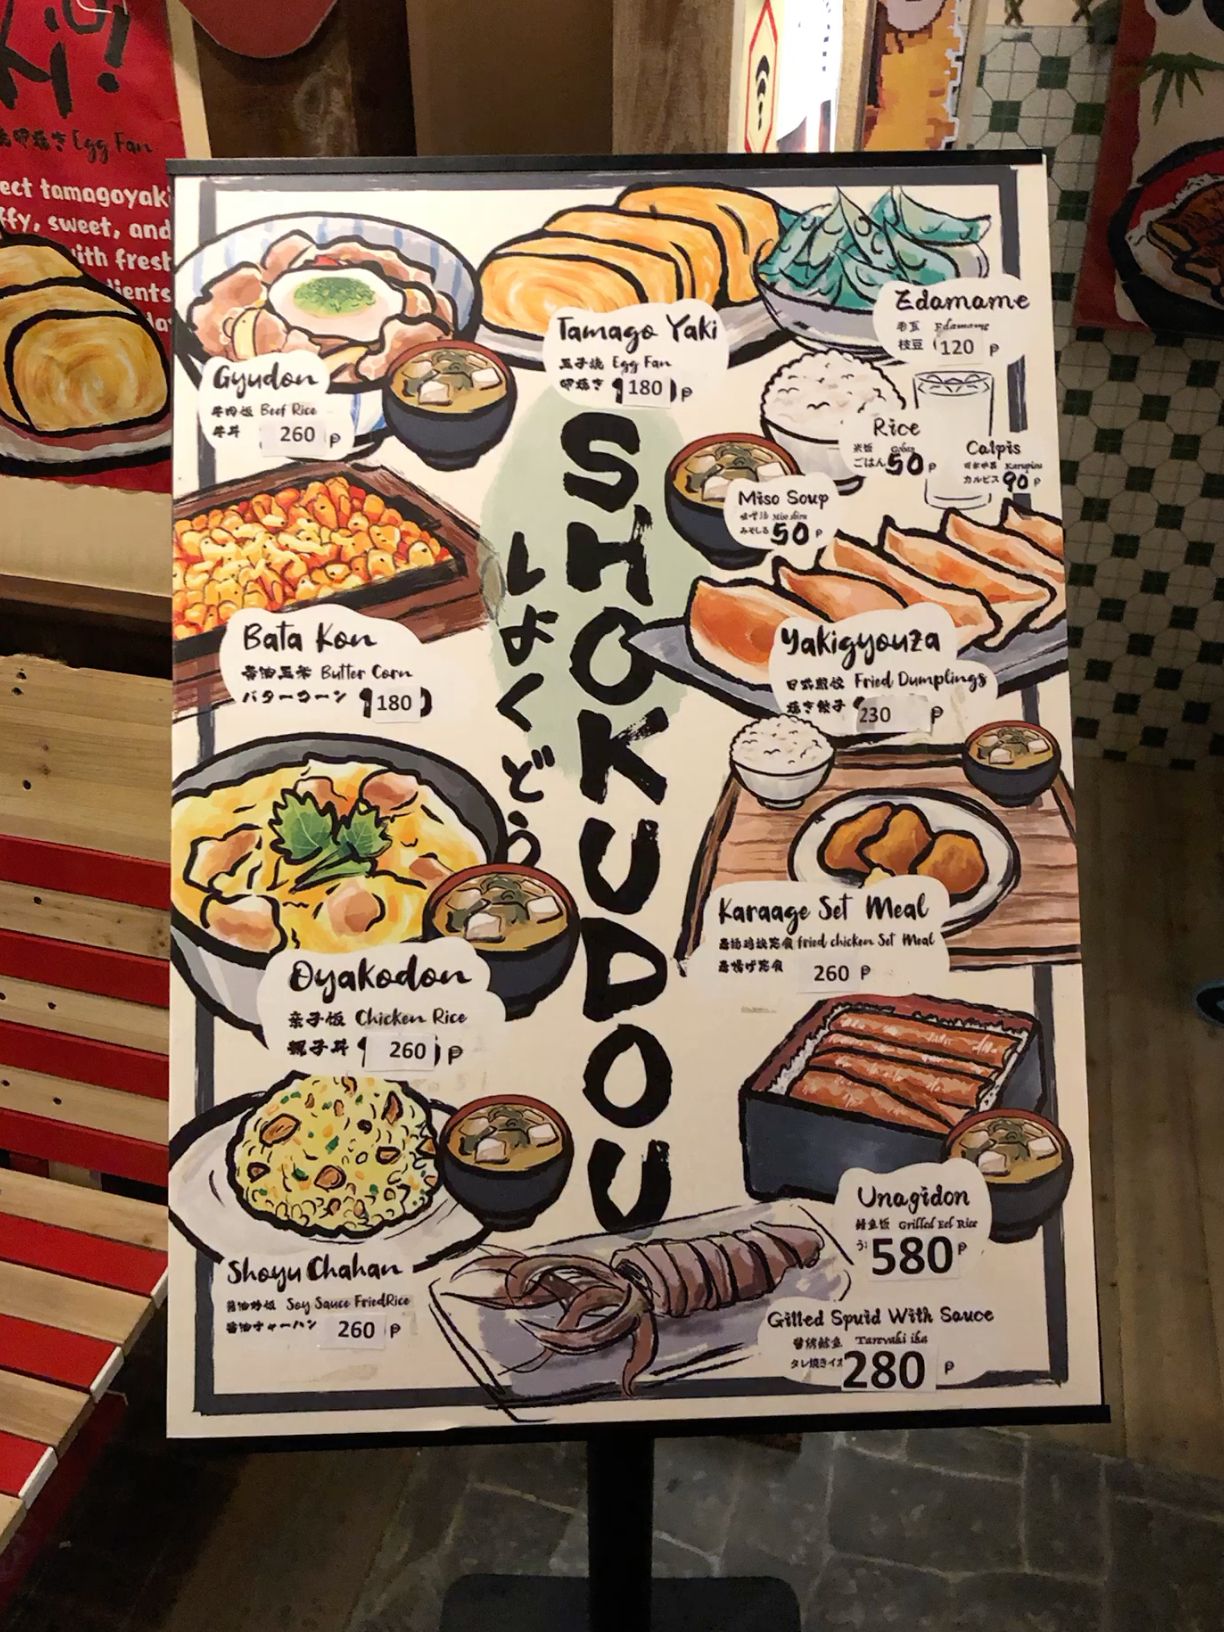 焼き Egg Fan
ect tamagoyaki
ffy, sweet, and
with fresh
dients
Gyudon
牛肉饭 Beef Rice
牛丼 260 ₱
Tamago Yaki
玉子烧 Egg Fan
卵焼き (180) ₱
Edamame
毛豆 Edamame
枝豆 120 ₱
Rice
米饭 Gohan
ごはん 50 ₱
Calpis
Karupisu
カルピス 90 ₱
Miso Soup
味噌汤 Miso shiru
みそしる 50 ₱
SHOKUDOU
しょくどう
Bata Kon
酱油玉米 Butter Corn
バターコーン (180)
Yakigyouza
日式煎饺 Fried Dumplings
焼き餃子 230 ₱
Oyakodon
亲子饭 Chicken Rice
親子丼 (260) ₱
Karaage Set Meal
fried chicken Set Meal
唐揚げ定食 260 ₱
Shoyu Chahan
酱油炒饭 Soy Sauce Fried Rice
醤油チャーハン 260 ₱
Unagidon
鳗鱼饭 Grilled Eel Rice
う 580 ₱
Gilled Spuid With Sauce
Tareyaki ika
タレ焼きイカ 280 ₱